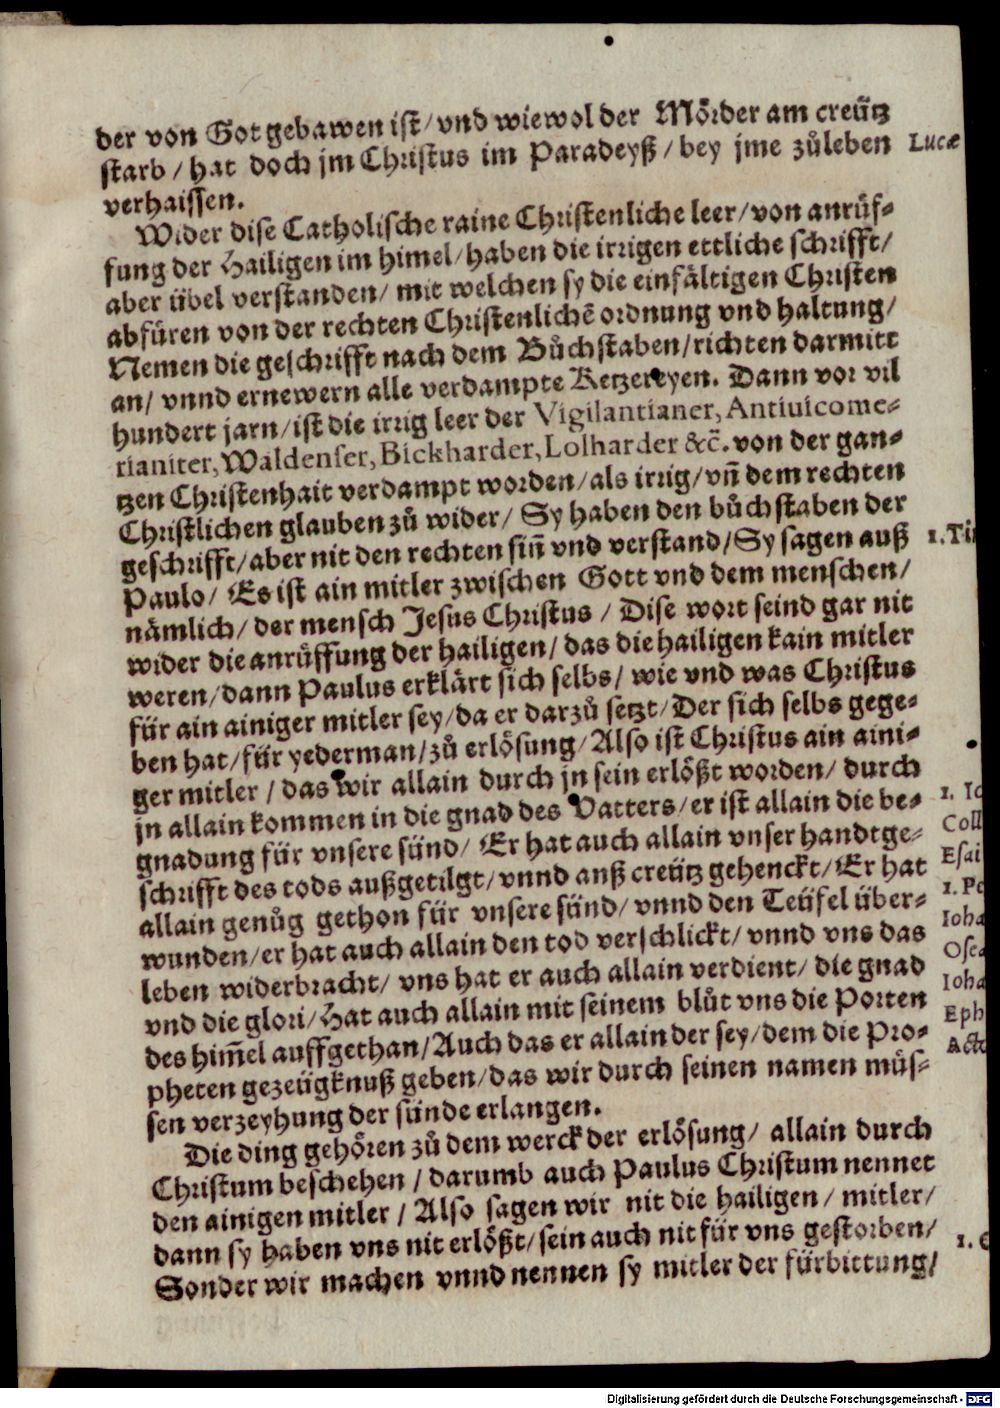 der von Got gebawen ist/vnd wiewol der Mörder am creütz
starb/hat doch jm Christus im Paradeyß/bey jme zůleben
Lucæ
verhaissen.
Wider dise Catholische raine Christenliche leer/von anrüf⸗
fung der Hailigen im himel/haben die irrigen ettliche schrifft/
aber übel verstanden/mit welchen sy die einfältigen Christen
abfüren von der rechten Christenlichẽ ordnung vnd haltung/
Nemen die geschrifft nach dem Bůchstaben/richten darmitt
an/vnnd ernewern alle verdampte Ketzereyen. Dann vor vil
hundert jarn/ist die irrig leer der Vigilantianer, Antiuicome⸗
rianiter, Waldenser, Bickharder, Lolharder &c̃. von der gan⸗
tzen Christenhait verdampt worden/als irrig/vñ dem rechten
Christlichen glauben zů wider/Sy haben den bůchstaben der
geschrifft/aber nit den rechten siñ vnd verstand/Sy sagen auß
1. Ti
Paulo/Es ist ain mitler zwischen Gott vnd dem menschen/
nämlich/der mensch Jesus Christus/Dise wort seind gar nit
wider die anrüffung der hailigen/das die hailigen kain mitler
weren/dann Paulus erklärt sich selbs/wie vnd was Christus
für ain ainiger mitler sey/da er darzů setzt/Der sich selbs gege⸗
ben hat/für yederman/zů erlösung/Also ist Christus ain aini⸗
ger mitler/das wir allain durch jn sein erlößt worden/durch
jn allain kommen in die gnad des Vatters/er ist allain die be⸗
1. Io
gnadung für vnsere sünd/Er hat auch allain vnser handtge⸗
Coll
schrifft des tods außgetilgt/vnnd anß creütz gehenckt/Er hat
Esai
allain genůg gethon für vnsere sünd/vnnd den Teüfel über⸗
1. Pe
wunden/er hat auch allain den tod verschlickt/vnnd vns das
Ioha
leben widerbracht/vns hat er auch allain verdient/die gnad
Osea
vnd die glori/Hat auch allain mit seinem blůt vns die Porten
Ioha
des him̃el auffgethan/Auch das er allain der sey/dem die Pro⸗
Eph
pheten gezeügknuß geben/das wir durch seinen namen müs⸗
Acto
sen verzeyhung der sünde erlangen.
Die ding gehören zů dem werck der erlösung/allain durch
Christum beschehen/darumb auch Paulus Christum nennet
den ainigen mitler/Also sagen wir nit die hailigen/mitler/
dann sy haben vns nit erlößt/sein auch nit für vns gestorben/
1.
Sonder wir machen vnnd nennen sy mitler der fürbittung/
Digitalisierung gefördert durch die Deutsche Forschungsgemeinschaft - DFG